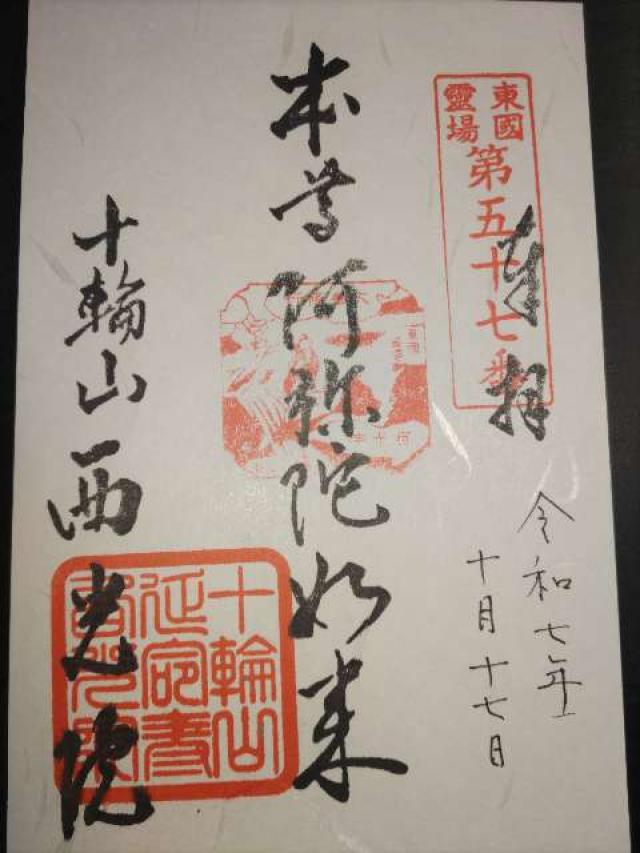 東國
靈場
第五十七番
奉拝
令和七年
十月十七日
本尊阿弥陀如来
十輪山西光院
十輪山
延命寺
西光院